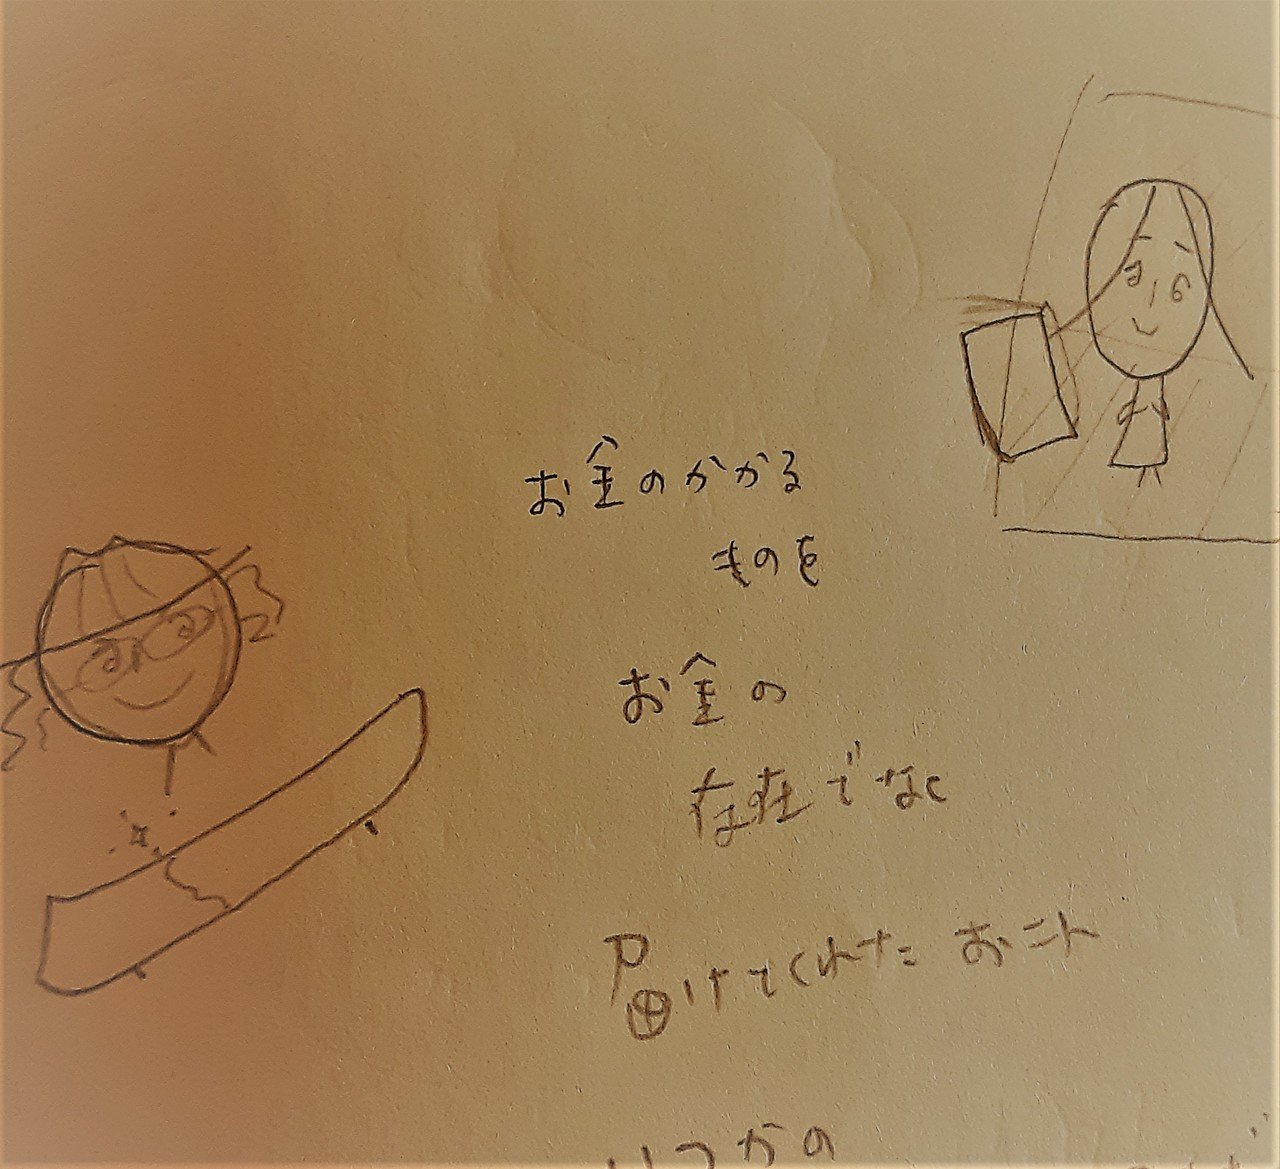 お金のかかる
ものを
お金の
存在でなく
届けてくれた お二人
いつかの